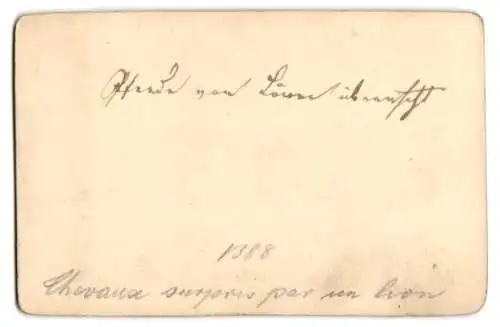 Pferde von Löwen überrascht
1388
Chevaux surpris par un lion